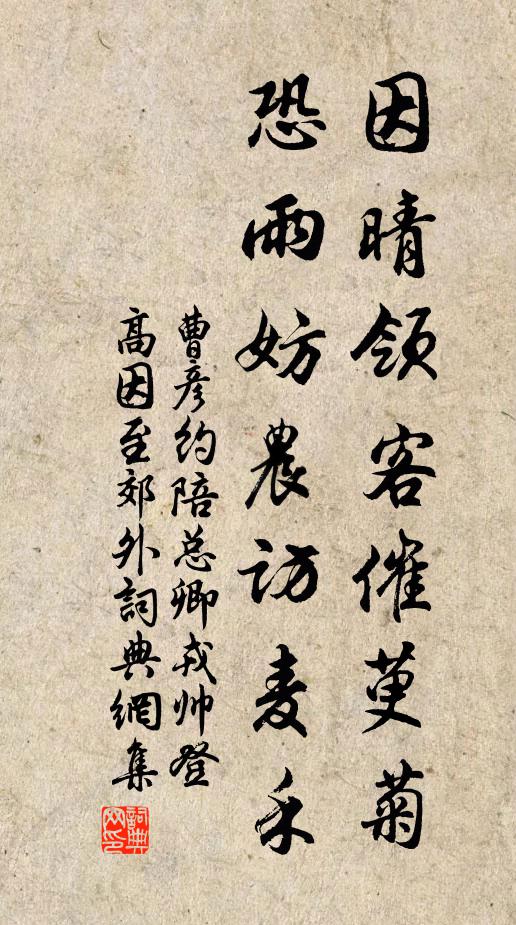 因晴領客催萸菊
恐雨妨農訪麦禾
曹彦約陪总卿戎帅登
高因至郊外詞典網集
詞典
网印